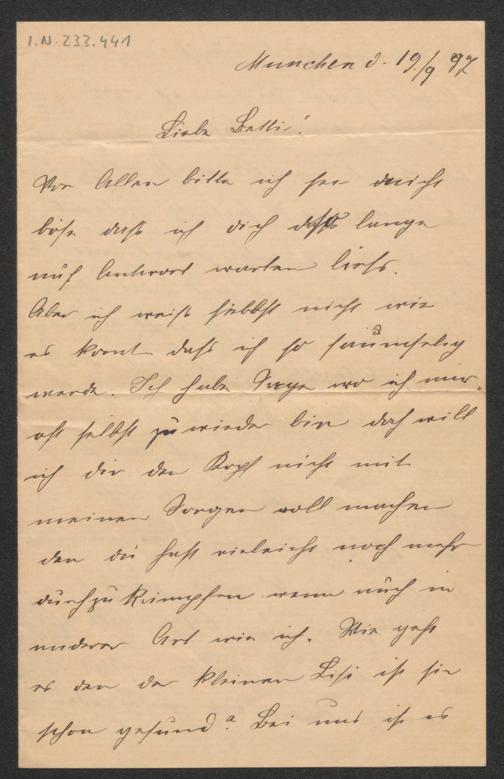 I.N. 233.441
München d. 19/9 97
Liebe Betti!
Vor Allen bitte ich sei nicht
böse daß ich dich so lange
auf Antwort warten ließ.
Aber ich weiß selbst nicht wie
es komt daß ich so saumselig
werde. Ich habe Tage wo ich mir
oft selbst zu wieder bin doch will
ich dir den Kopf nicht mit
meinen Sorgen voll machen
den du hast vieleicht noch mehr
durchzukämpfen wenn auch in
anderer Art wie ich. Wie geht
es den der kleinen Lisi ist sie
schon gesund? Bei uns ist es